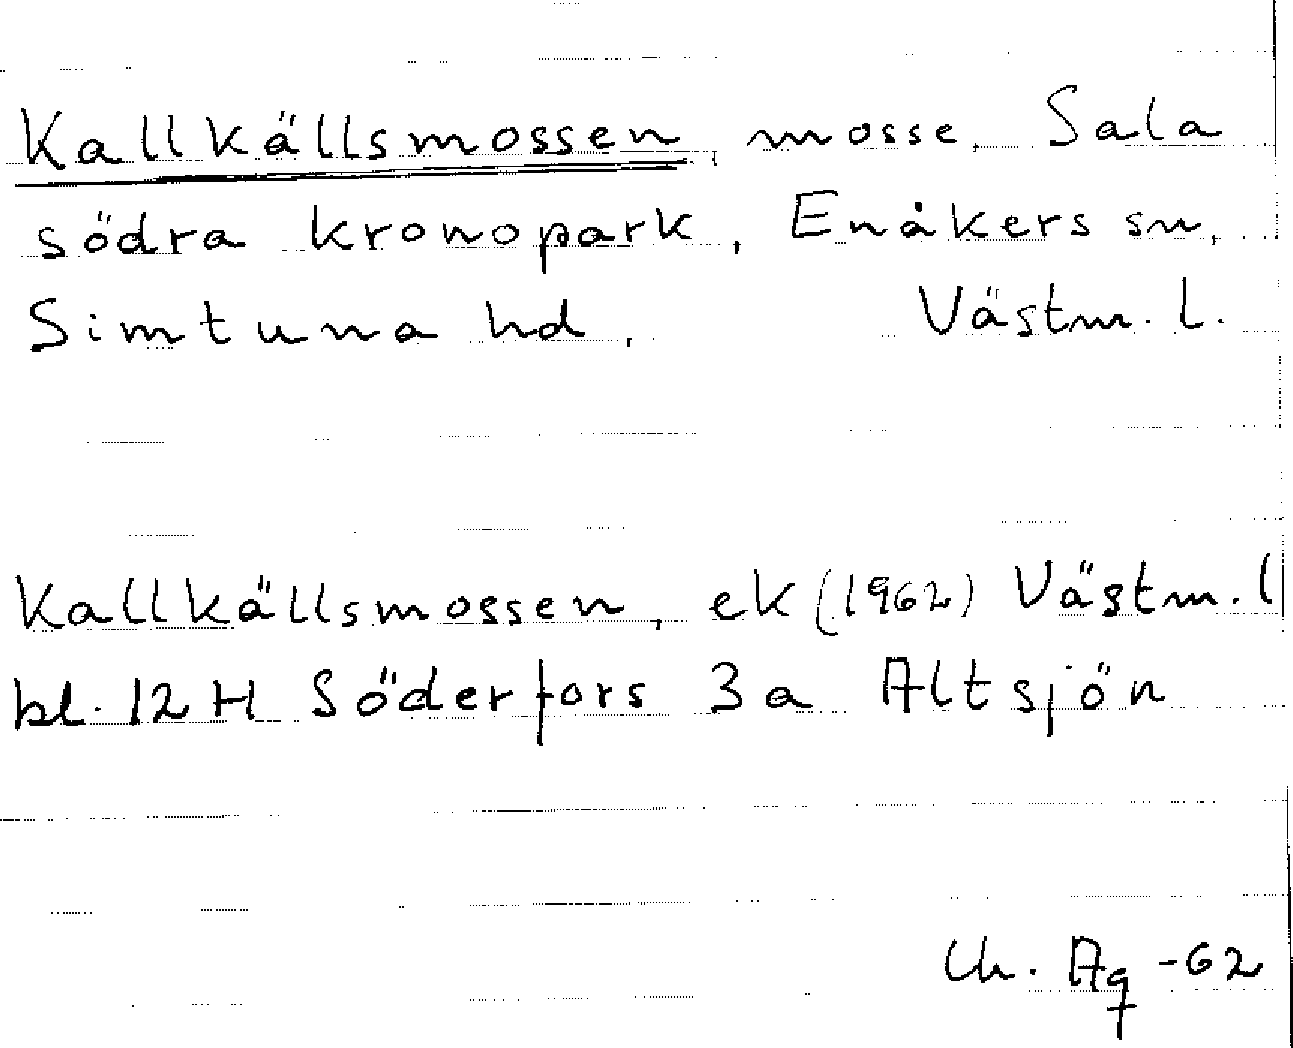 Kallkällsmossen, mosse, Sala
södra kronopark, Enåkers sn,
Simtuna hd, Västm. l.
Kallkällsmossen, ek (1962) Västm. l
bl. 12 H Söderfors 3a Altsjön
Ch. Ag -62